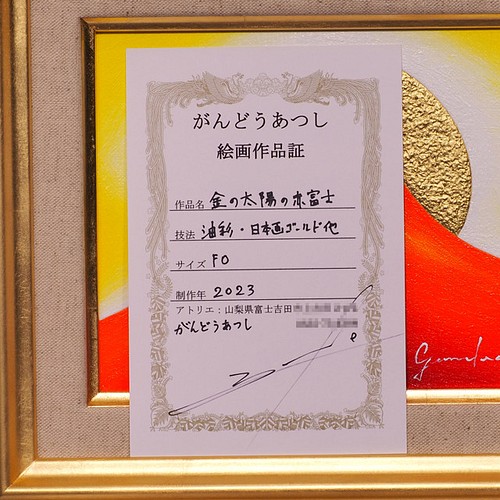 がんどうあつし
絵画作品証
作品名 金の太陽の赤富士
技法 油彩・日本画ゴールド他
サイズ F0
制作年 2023
アトリエ：山梨県富士吉田
がんどうあつし